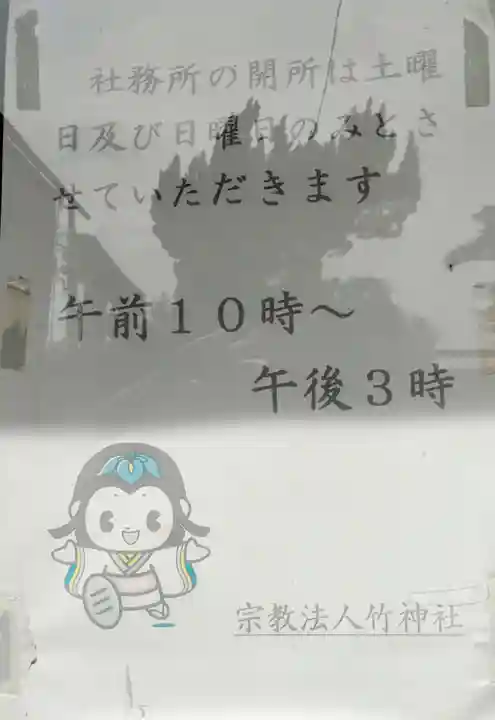 社務所の開所は土曜
日及び日曜日のみとさ
せていただきます
午前１０時～
午後３時
宗教法人竹神社